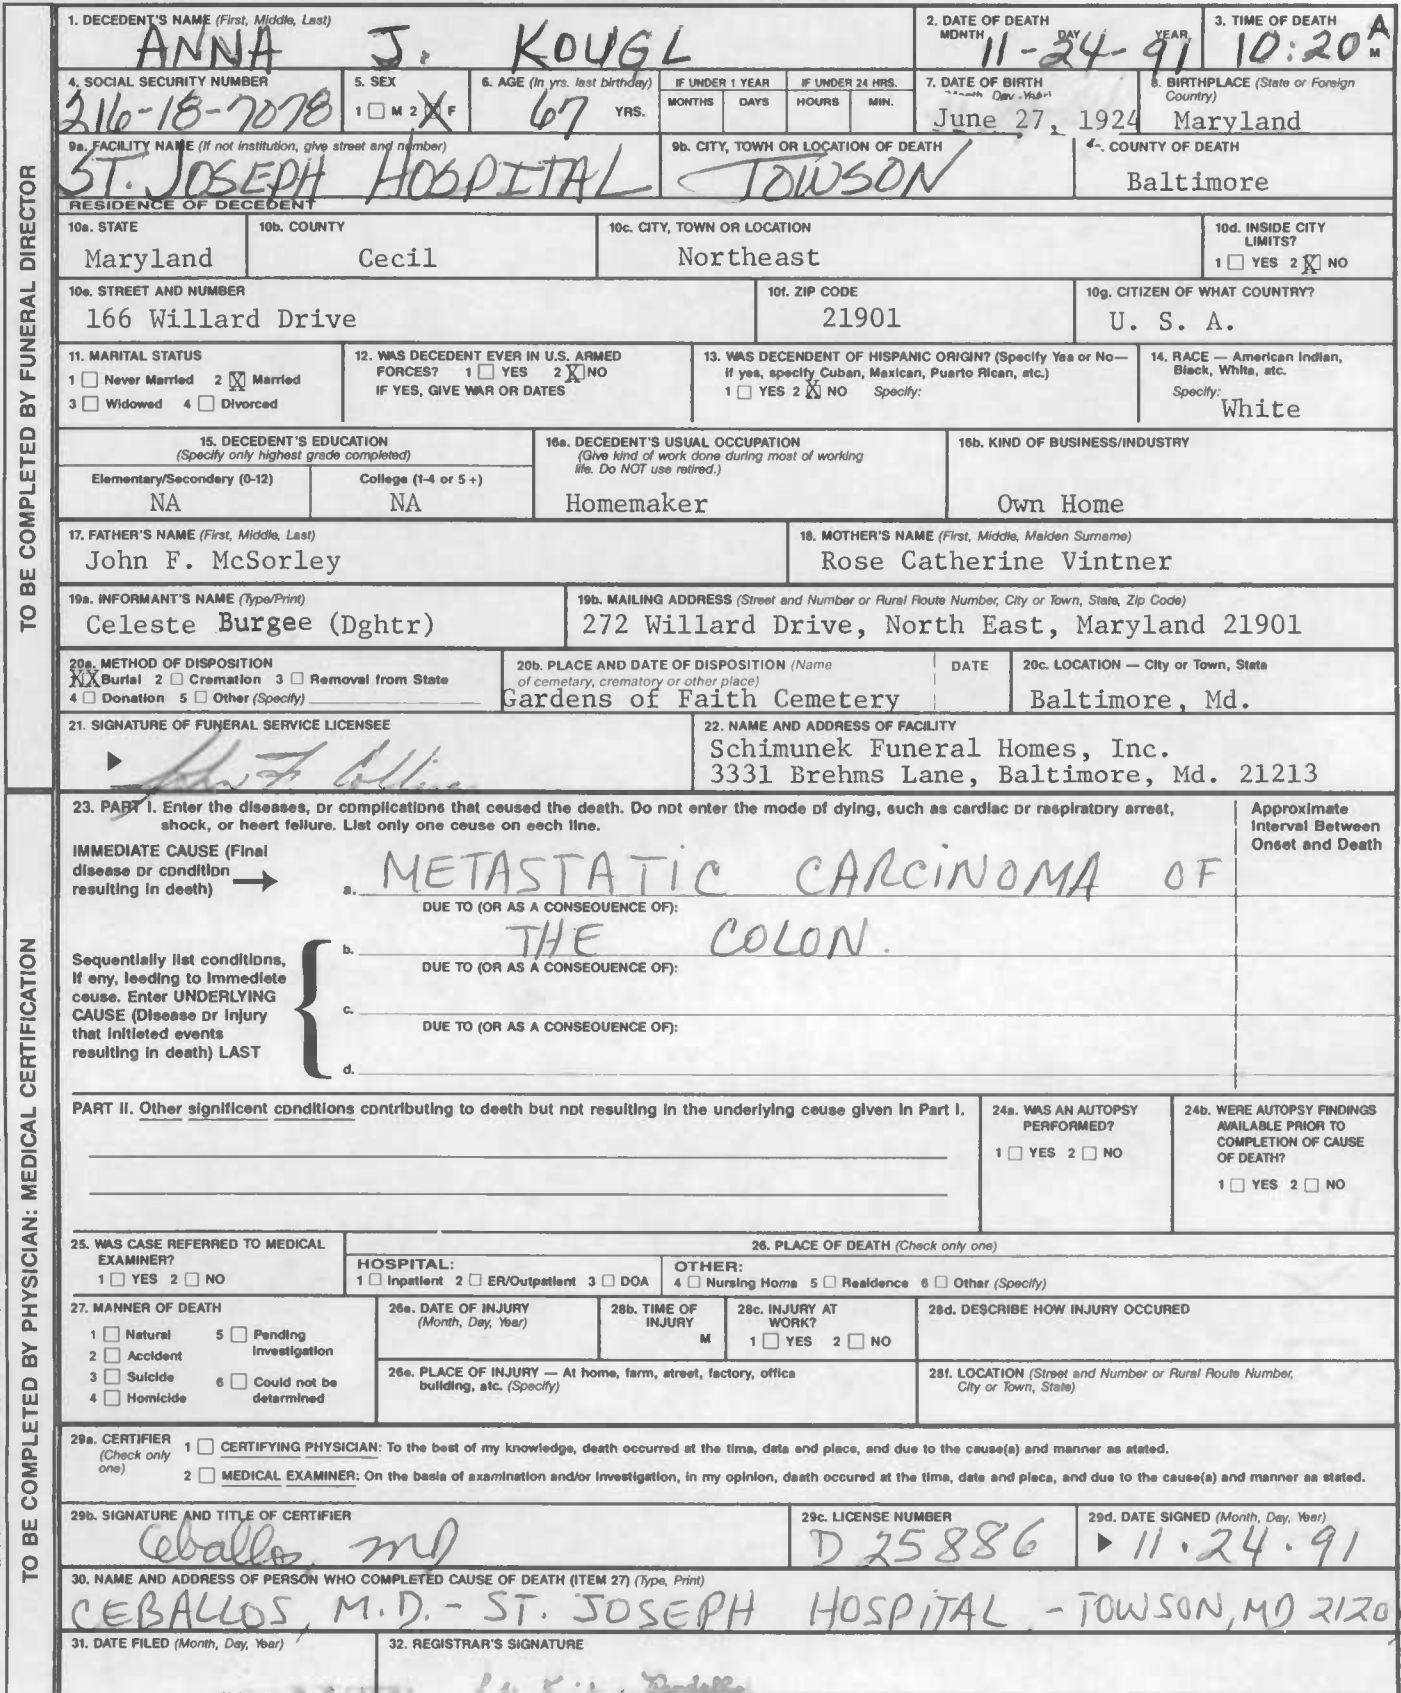 1. DECEDENT'S NAME (First, Middle, Last)
ANNA J. KOUGL
2. DATE OF DEATH
MONTH DAY YEAR
11-24-91
3. TIME OF DEATH
10:20 A M
4. SOCIAL SECURITY NUMBER
216-18-7078
5. SEX
1 M 2 X F
6. AGE (In yrs. last birthday)
67 YRS.
IF UNDER 1 YEAR
MONTHS DAYS
IF UNDER 24 HRS.
HOURS MIN.
7. DATE OF BIRTH
June 27, 1924
8. BIRTHPLACE (State or Foreign Country)
Maryland
9a. FACILITY NAME (If not institution, give street and number)
ST. JOSEPH HOSPITAL
9b. CITY, TOWN OR LOCATION OF DEATH
TOWSON
COUNTY OF DEATH
Baltimore
RESIDENCE OF DECEDENT
10a. STATE
Maryland
10b. COUNTY
Cecil
10c. CITY, TOWN OR LOCATION
Northeast
10d. INSIDE CITY LIMITS?
1 YES 2 X NO
10e. STREET AND NUMBER
166 Willard Drive
10f. ZIP CODE
21901
10g. CITIZEN OF WHAT COUNTRY?
U. S. A.
11. MARITAL STATUS
1 Never Married 2 X Married
3 Widowed 4 Divorced
12. WAS DECEDENT EVER IN U.S. ARMED
FORCES? 1 YES 2 X NO
IF YES, GIVE WAR OR DATES
13. WAS DECENDENT OF HISPANIC ORIGIN? (Specify Yes or No—
If yes, specify Cuban, Mexican, Puerto Rican, etc.)
1 YES 2 X NO Specify:
14. RACE — American Indian,
Black, White, etc.
Specify:
White
15. DECEDENT'S EDUCATION
(Specify only highest grade completed)
Elementary/Secondary (0-12) College (1-4 or 5+)
NA NA
16a. DECEDENT'S USUAL OCCUPATION
(Give kind of work done during most of working
life. Do NOT use retired.)
Homemaker
16b. KIND OF BUSINESS/INDUSTRY
Own Home
17. FATHER'S NAME (First, Middle, Last)
John F. McSorley
18. MOTHER'S NAME (First, Middle, Maiden Surname)
Rose Catherine Vintner
19a. INFORMANT'S NAME (Type/Print)
Celeste Burgee (Dghtr)
19b. MAILING ADDRESS (Street and Number or Rural Route Number, City or Town, State, Zip Code)
272 Willard Drive, North East, Maryland 21901
20a. METHOD OF DISPOSITION
XX Burial 2 Cremation 3 Removal from State
4 Donation 5 Other (Specify)
20b. PLACE AND DATE OF DISPOSITION (Name
of cemetary, crematory or other place)
DATE
Gardens of Faith Cemetery
20c. LOCATION — City or Town, State
Baltimore, Md.
21. SIGNATURE OF FUNERAL SERVICE LICENSEE
John F Collins
22. NAME AND ADDRESS OF FACILITY
Schimunek Funeral Homes, Inc.
3331 Brehms Lane, Baltimore, Md. 21213
TO BE COMPLETED BY FUNERAL DIRECTOR
23. PART I. Enter the diseases, or complications that caused the death. Do not enter the mode of dying, such as cardiac or respiratory arrest,
shock, or heart failure. List only one cause on each line.
Approximate
Interval Between
Onset and Death
IMMEDIATE CAUSE (Final
disease or condition
resulting in death)
a. METASTATIC CARCINOMA OF
DUE TO (OR AS A CONSEQUENCE OF):
b. THE COLON.
DUE TO (OR AS A CONSEQUENCE OF):
c.
DUE TO (OR AS A CONSEQUENCE OF):
d.
Sequentially list conditions,
if any, leading to immediate
cause. Enter UNDERLYING
CAUSE (Disease or injury
that initiated events
resulting in death) LAST
PART II. Other significant conditions contributing to death but not resulting in the underlying cause given in Part I.
24a. WAS AN AUTOPSY
PERFORMED?
1 YES 2 NO
24b. WERE AUTOPSY FINDINGS
AVAILABLE PRIOR TO
COMPLETION OF CAUSE
OF DEATH?
1 YES 2 NO
25. WAS CASE REFERRED TO MEDICAL
EXAMINER?
1 YES 2 NO
26. PLACE OF DEATH (Check only one)
HOSPITAL:
1 Inpatient 2 ER/Outpatient 3 DOA
OTHER:
4 Nursing Home 5 Residence 6 Other (Specify)
27. MANNER OF DEATH
1 Natural 5 Pending
Investigation
2 Accident
3 Suicide 6 Could not be
4 Homicide determined
28a. DATE OF INJURY
(Month, Day, Year)
28b. TIME OF
INJURY
M
28c. INJURY AT
WORK?
1 YES 2 NO
28d. DESCRIBE HOW INJURY OCCURED
28e. PLACE OF INJURY — At home, farm, street, factory, office
building, etc. (Specify)
28f. LOCATION (Street and Number or Rural Route Number,
City or Town, State)
29a. CERTIFIER
(Check only
one)
1 CERTIFYING PHYSICIAN: To the best of my knowledge, death occurred at the time, date and place, and due to the cause(s) and manner as stated.
2 MEDICAL EXAMINER: On the basis of examination and/or investigation, in my opinion, death occured at the time, date and place, and due to the cause(s) and manner as stated.
29b. SIGNATURE AND TITLE OF CERTIFIER
Ceballos, MD
29c. LICENSE NUMBER
D 25886
29d. DATE SIGNED (Month, Day, Year)
11.24.91
30. NAME AND ADDRESS OF PERSON WHO COMPLETED CAUSE OF DEATH (ITEM 27) (Type, Print)
CEBALLOS, M.D. - ST. JOSEPH HOSPITAL - TOWSON, MD 2120
31. DATE FILED (Month, Day, Year)
32. REGISTRAR'S SIGNATURE
TO BE COMPLETED BY PHYSICIAN: MEDICAL CERTIFICATION